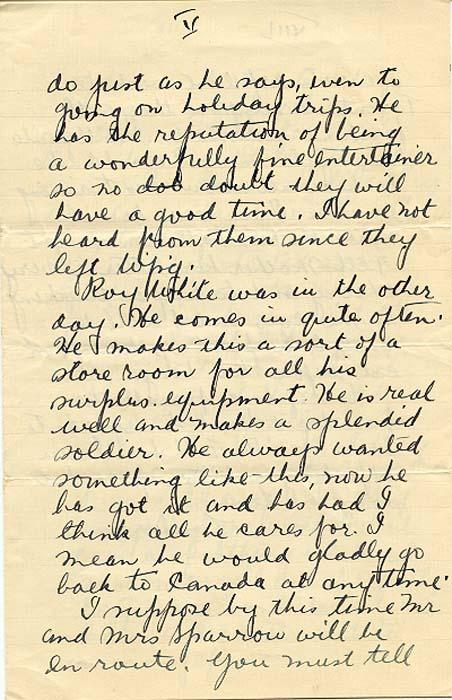 V
do just as he says, even to
going on holiday trips. He
has the reputation of being
a wonderfully fine entertainer
so no dob doubt they will
have a good time. I have not
heard from them since they
left Wpg.
Roy White was in the other
day. He comes in quite often.
He makes this a sort of a
store room for all his
surplus equipment. He is real
well and makes a splendid
soldier. He always wanted
something like this, now he
has got it and has had I
think all he cares for. I
mean he would gladly go
back to Canada at any time.
I suppose by this time Mr
and Mrs Sparrow will be
en route. You must tell